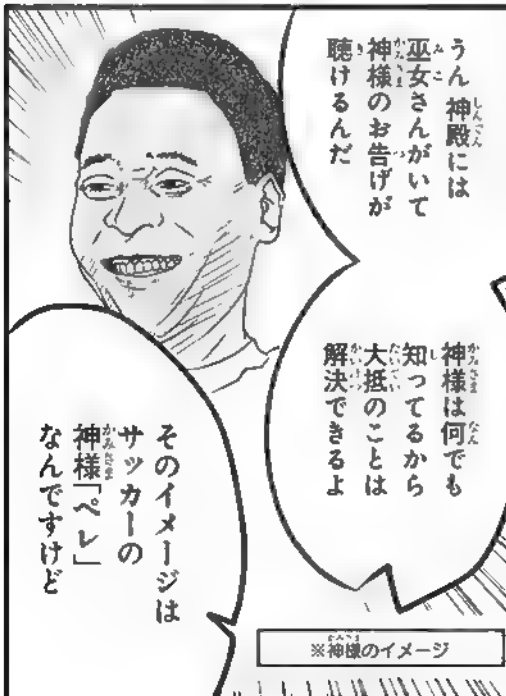 うん 神殿には
巫女さんがいて
神様のお告げが
聴けるんだ
神様は何でも
知ってるから
大抵のことは
解決できるよ
そのイメージは
サッカーの
神様「ペレ」
なんですけど
※神様のイメージ